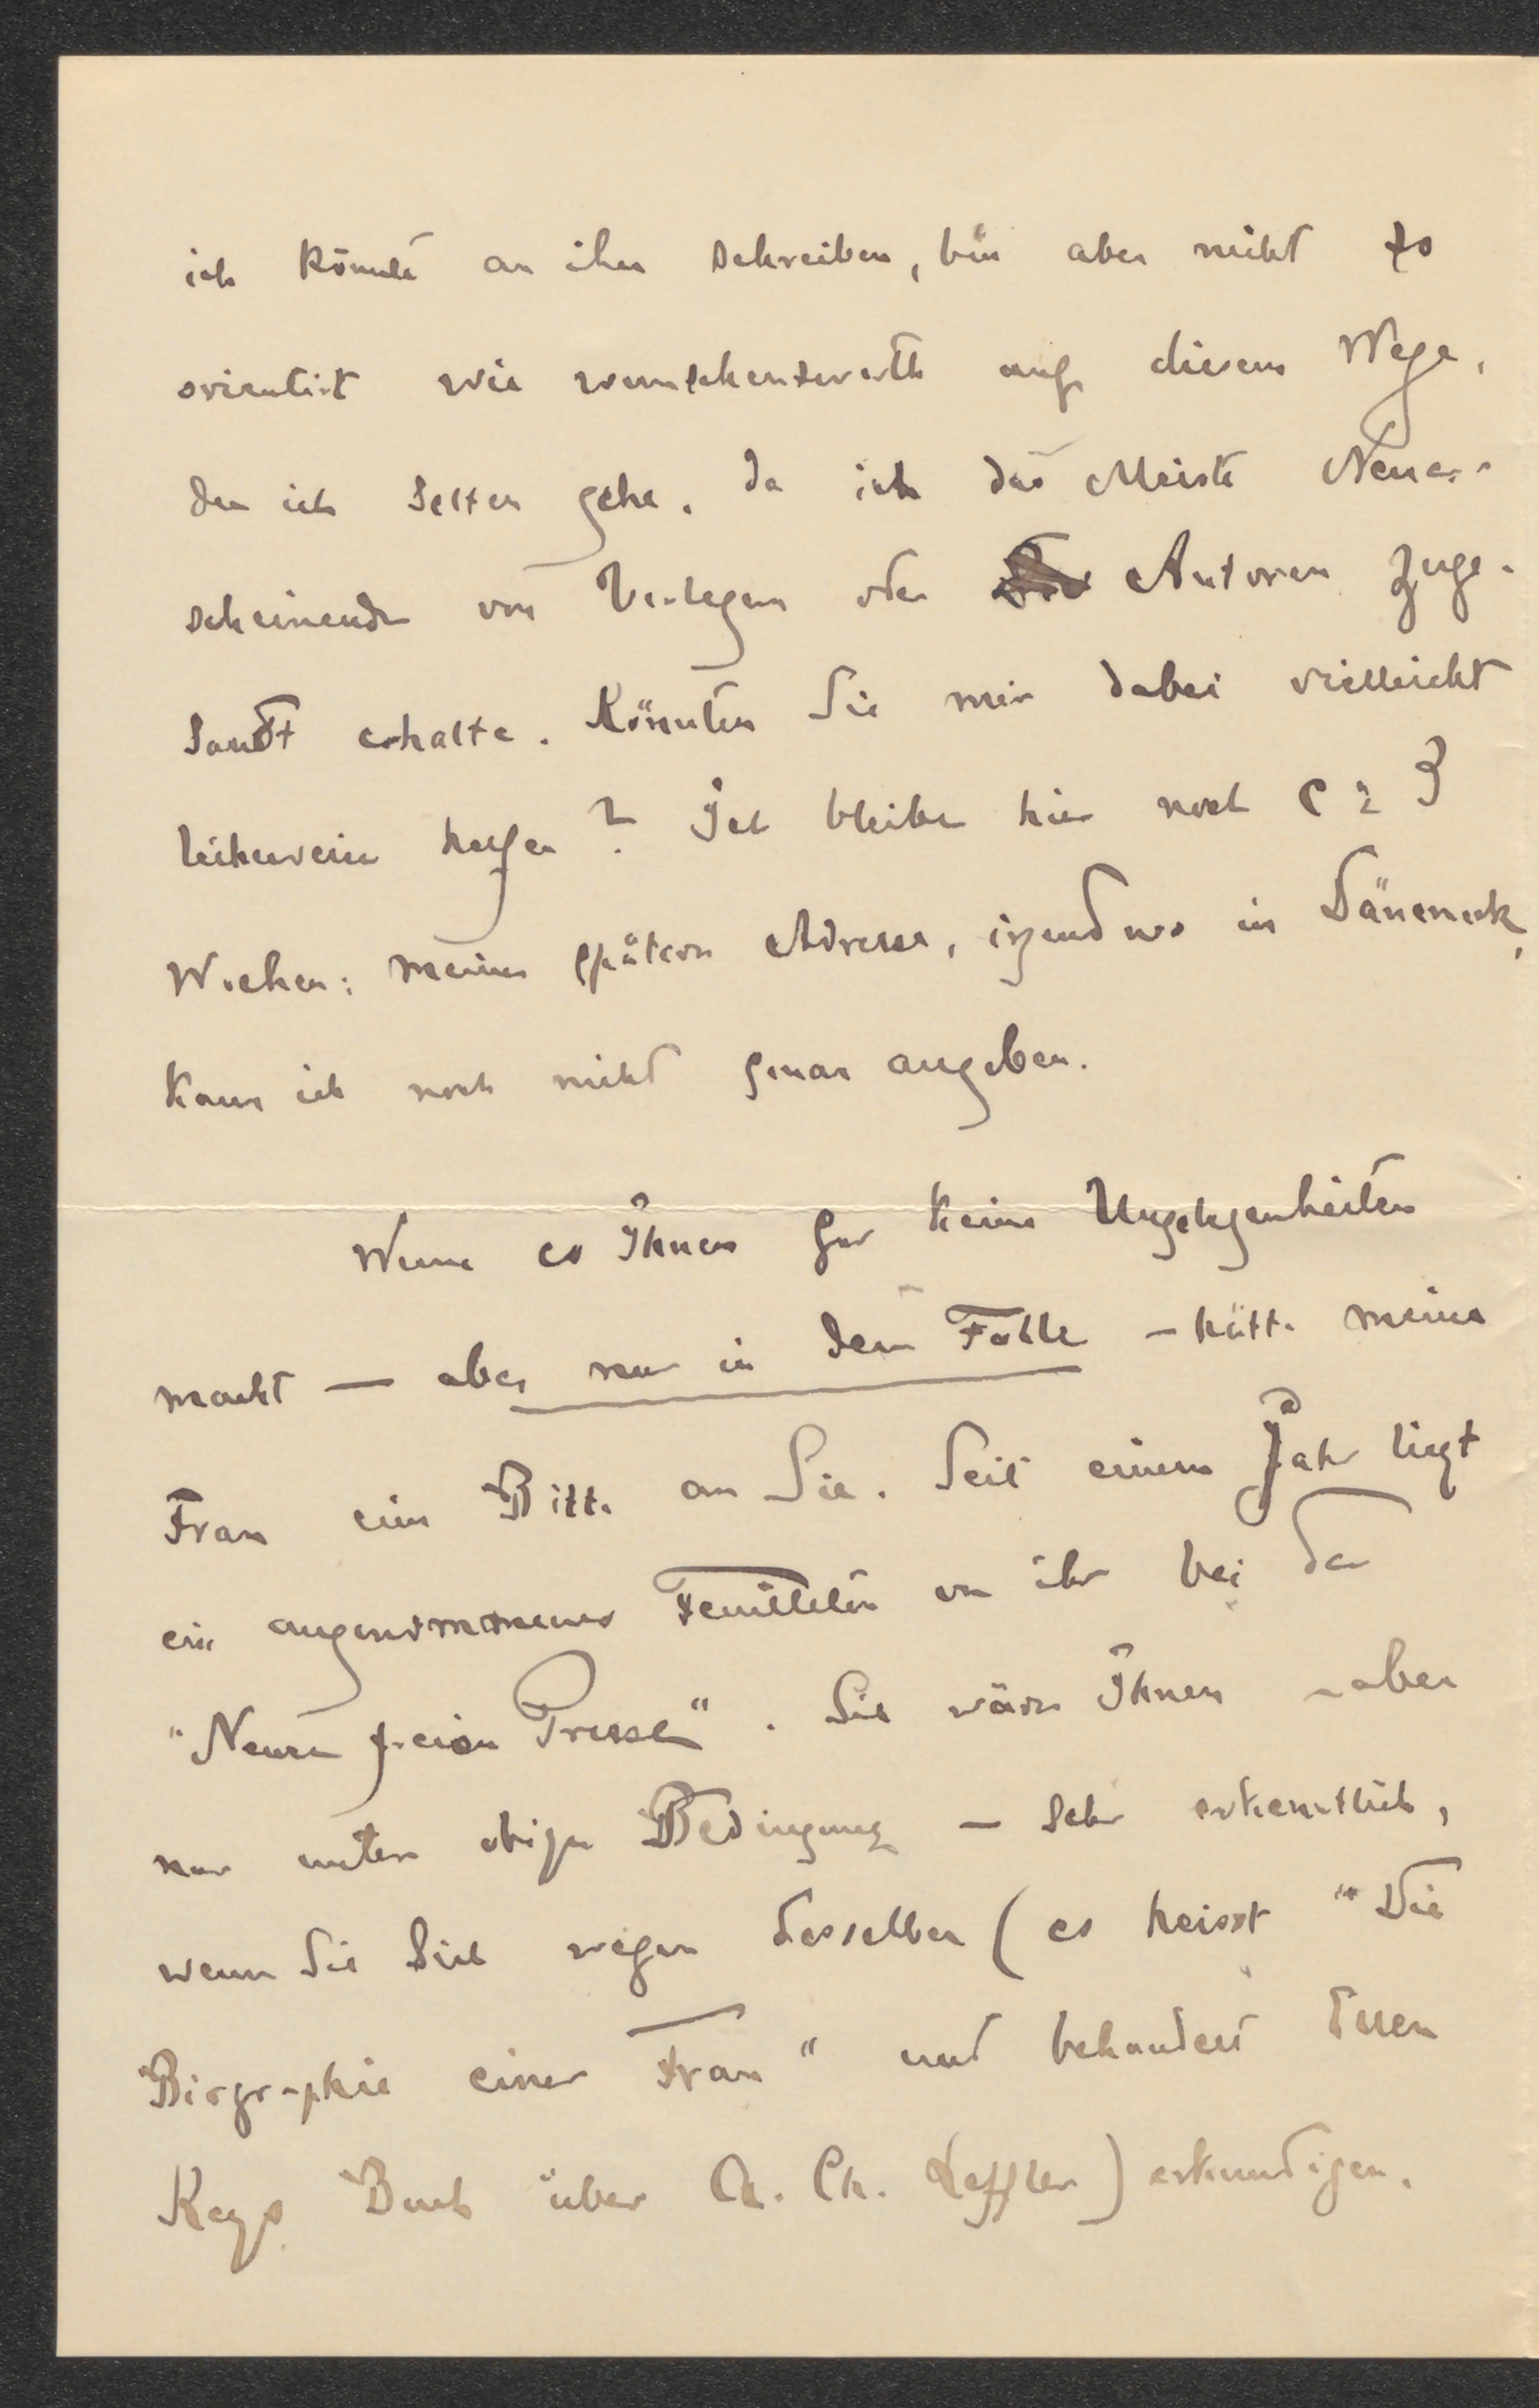 ich könnte an ihn schreiben, bin aber nicht so
orientirt wie wünschenswerth auf diesem Wege,
den ich selten gehe, da ich das Meiste Neuer-
scheinende von Verlegern oder Autoren zuge-
sandt erhalte. Könnten Sie mir dabei vielleicht
helfen? Ich bleibe hier noch c 2
Wochen; meine spätere Adresse, irgendwo in Dänemark,
kann ich noch nicht genau angeben.
Wenn es Ihnen gar keine Ungelegenheiten
macht — aber nur in dem Falle — hätte meine
Frau eine Bitte an Sie. Seit einem Jahr liegt
ein angenommenes Feuilleton von ihr bei der
"Neuen freien Presse". Sie wäre Ihnen — aber
nur unter obiger Bedingung — sehr erkenntlich,
wenn Sie Sich wegen desselben (es heisst "Die
Biographie einer Frau" und behandelt Ellen
Keys Buch über A. Ch. Leffler) erkundigen.